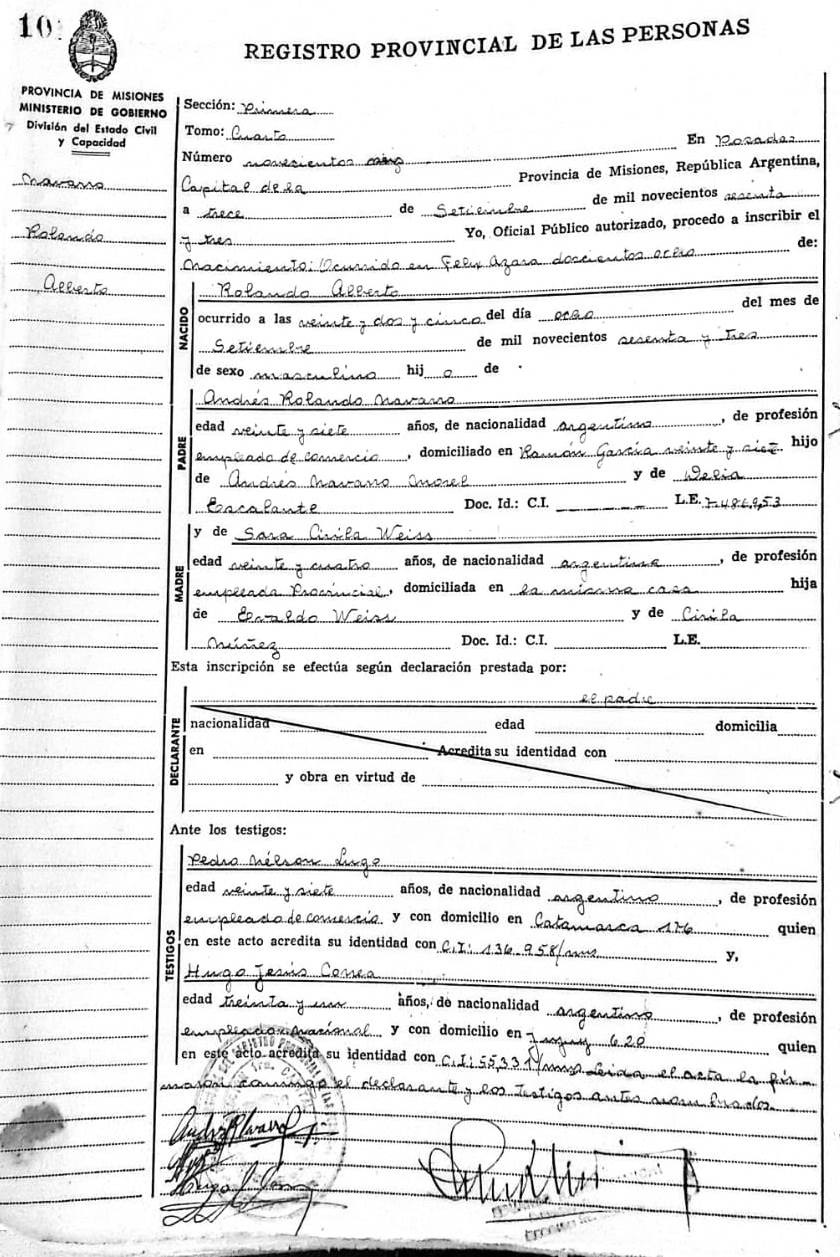 10
REGISTRO PROVINCIAL DE LAS PERSONAS
PROVINCIA DE MISIONES
MINISTERIO DE GOBIERNO
División del Estado Civil
y Capacidad
Navarro
Rolando
Alberto
Sección: Primera
Tomo: Cuarto
Número novecientos cinco En Posadas
Capital de la Provincia de Misiones, República Argentina,
a trece de Setiembre de mil novecientos sesenta
y tres Yo, Oficial Público autorizado, procedo a inscribir el
Nacimiento: Ocurrido en Felix Azara doscientos ocho de:
NACIDO
Rolando Alberto
ocurrido a las veinte y dos y cinco del día ocho del mes de
Setiembre de mil novecientos sesenta y tres
de sexo masculino hij o de
PADRE
Andrés Rolando Navarro
edad veinte y siete años, de nacionalidad argentino, de profesión
empleado de comercio, domiciliado en Ramón García veinte y siete hijo
de Andrés Navarro Morel y de Delia
Escalante Doc. Id.: C.I. L.E. 7.486.953
MADRE
y de Sara Cirila Weiss
edad veinte y cuatro años, de nacionalidad argentina, de profesión
empleada Provincial, domiciliada en la misma casa hija
de Ervaldo Weiss y de Cirila
Núñez Doc. Id.: C.I. L.E.
Esta inscripción se efectúa según declaración prestada por:
DECLARANTE
el padre
nacionalidad edad domicilia
en Acredita su identidad con
y obra en virtud de
Ante los testigos:
TESTIGOS
Pedro Nélson Lugo
edad veinte y siete años, de nacionalidad argentino, de profesión
empleado de comercio y con domicilio en Catamarca 176 quien
en este acto acredita su identidad con C.I: 136.958/mns y,
Hugo Jesús Correa
edad treinta y un años, de nacionalidad argentino, de profesión
empleado Nacional y con domicilio en Jujuy 620 quien
en este acto acredita su identidad con C.I: 55.331/mns Leida el acta la fir-
maron conmigo el declarante y los Testigos antes nombrados.